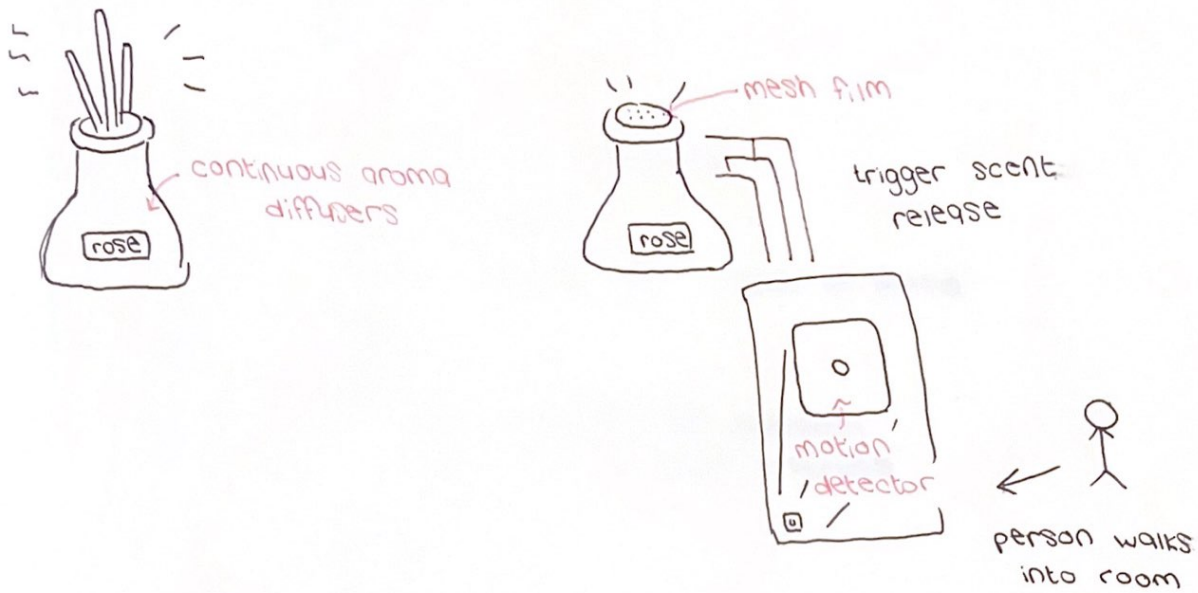 continuous aroma
diffusers
rose
mesh film
trigger scent
release
rose
motion
detector
person walks
into room